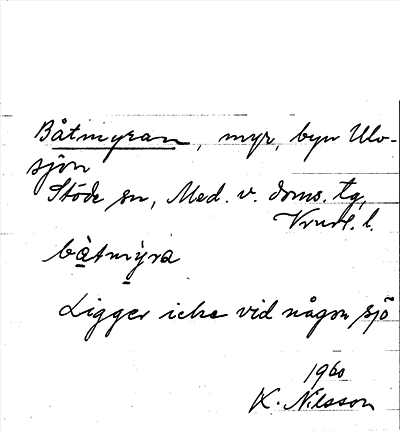 Båtmyran, myr, byn Ulv-
sjön
Stöde sn, Med. v. doms. tg,
Vnrl. l.
bà̱tmỳ̱ra
Ligger icke vid någon sjö
1960
K. Nilsson